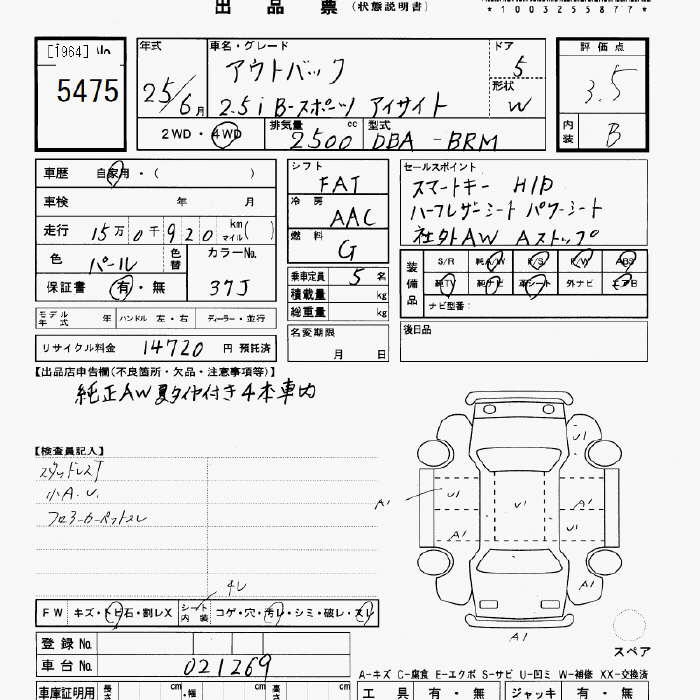 出品票（状態説明書）
*1003255877*
[1964]
5475
年式 25/6月
車名・グレード アウトバック
2.5i B-スポーツ アイサイト
ドア 5
形状 W
評価点 3.5
内装 B
2WD・4WD 排気量 2500 cc 型式 DBA-BRM
車歴 自家用・( )
車検 年 月
走行 15万0千920 km マイル( )
色 パール 色替 カラーNo. 37J
保証書 有・無
モデル年式 年 ハンドル 左・右 ディーラー・並行
リサイクル料金 14720 円 預託済
シフト FAT
冷房 AAC
燃料 G
乗車定員 5 名
積載量 kg
総重量 kg
名変期限 月 日
セールスポイント
スマートキー HID
ハーフレザーシート パワーシート
社外AW Aストップ
装備品 S/R 純A/W P/S P/W ABS
純TV 純ナビ 革シート 外ナビ エアB
ナビ型番:
後日品
【出品店申告欄(不良箇所・欠品・注意事項等)】
純正AW夏タイヤ付き4本車内
【検査員記入】
スタッドレス
小A.U.
フロアカーペットスレ
FW キズ・トビ石・割レX シート内装 コゲ・穴・汚レ・シミ・破レ・スレ
登録No.
車台No. 021269
車庫証明用 長さ cm ・幅 cm 高さ cm
U1
A1
U1
U1
A1
A1
U1
A1
A1
スペア
A-キズ C-腐食 E-エクボ S-サビ U-凹ミ W-補修 XX-交換済
工具 有・無 ジャッキ 有・無